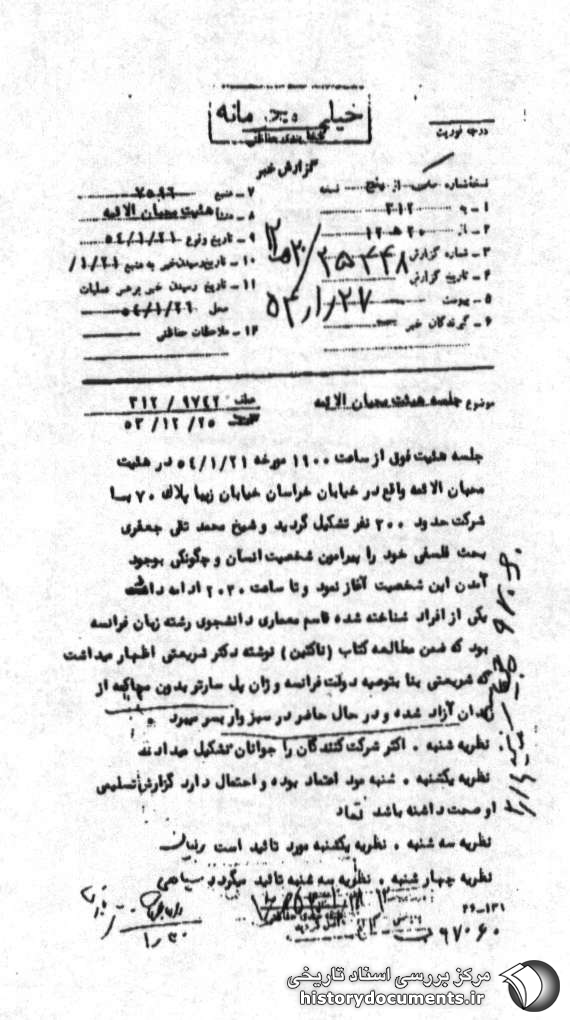 خیلی محرمانه
طبقه بندی حفاظتی
درجه فوریت
گزارش خبر
نسخه شماره از پنج نسخه
۱ - به ۳۱۲
۲ - از ۲۰ هـ ۱۲
۳ - شماره گزارش ۲۵۴۴۸
۴ - تاریخ گزارش ۵۴/۱/۲۷
۵ - پیوست
۶ - گیرندگان خبر
۷ - منبع ۷۵۹۶
۸ - منشأ هیئت محبان الائمه
۹ - تاریخ وقوع ۵٤/۱/۲۱
۱۰ - تاریخ رسیدن خبر به منبع ۱/۲۱/
۱۱ - تاریخ رسیدن خبر برهبر عملیات
محل ۵٤/۱/۲۶
۱۲ - ملاحظات حفاظتی
موضوع جلسه هیئت محبان الائمه
عطف ۹۷۴۲ / ۳۱۲
۵۳/۱۲/۲۵
جلسه هیئت فوق از ساعت ۱۹۰۰ مورخه ۵٤/۱/۲۱ در هیئت
محبان الائمه واقع در خیابان خراسان خیابان زیبا پلاک ۷۰ با
شرکت حدود ۲۰۰ نفر تشکیل گردید و شیخ محمد تقی جعفری
بحث فلسفی خود را پیرامون شخصیت انسان و چگونگی بوجود
آمدن این شخصیت آغاز نمود و تا ساعت ۲۰۳۰ ادامه داشت
یکی از افراد شناخته شده قاسم معماری دانشجوی رشته زبان فرانسه
بود که ضمن مطالعه کتاب (ناکثین) نوشته دکتر شریعتی اظهار میداشت
که شریعتی بنا بتوصیه دولت فرانسه و ژان پل سارتر بدون محاکمه از
زندان آزاد شده و در حال حاضر در سبزوار بسر میبرد .
نظریه شنبه . اکثر شرکت کنندگان را جوانان تشکیل میدادند
نظریه یکشنبه . شنبه مورد اعتماد بوده و احتمال دارد گزارش تسلیمی
او صحت داشته باشد
نظریه سه شنبه . نظریه یکشنبه مورد تائید است
نظریه چهار شنبه . نظریه سه شنبه تائید میگردد
۲۶-۱۳۱
۹۷۰۶۰
مرکز بررسی اسناد تاریخی
historydocuments.ir